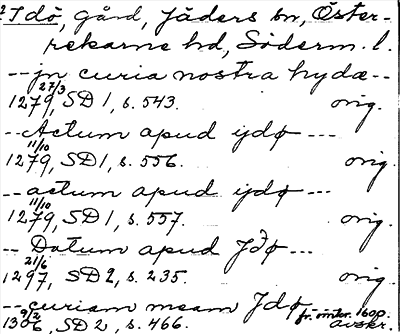 Idö, gård, Jäders sn, Öster-
rekarne hd, Söderm. l.
-- jn curia nostra hydæ --
27/3
1279, SD 1, s. 543. orig.
-- Actum apud ydø ---
11/10
1279, SD 1, s. 556. orig.
-- actum apud ydø ---
11/10
1279, SD 1, s. 557. orig.
-- Datum apud Jdø ---
21/6
1297, SD 2, s. 235. orig.
-- curiam meam Jdø fr. omkr. 1600.
9/2
1306, SD 2, s. 466. avskr.